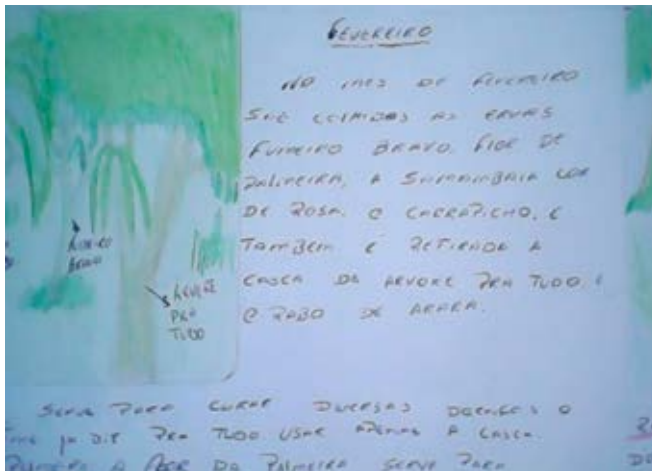 FEVEREIRO
NO MES DE FEVEREIRO
SÃO COLHIDAS AS ERVAS
FUMEIRO BRAVO, FLOR DE
PALMEIRA, A SAMAMBAIA COR
DE ROSA, O CARRAPICHO, E
TAMBEM É RETIRADA A
CASCA DA ARVORE PRA TUDO, E
O RABO DE ARARA.
FUMEIRO
BRAVO
ARVORE
PRA
TUDO
SERVE PARA CURAR DIVERSAS DOENÇAS O
JA DIZ PRA TUDO. USAR APENAS A CASCA.
A FLOR DA PALMEIRA SERVE PARA